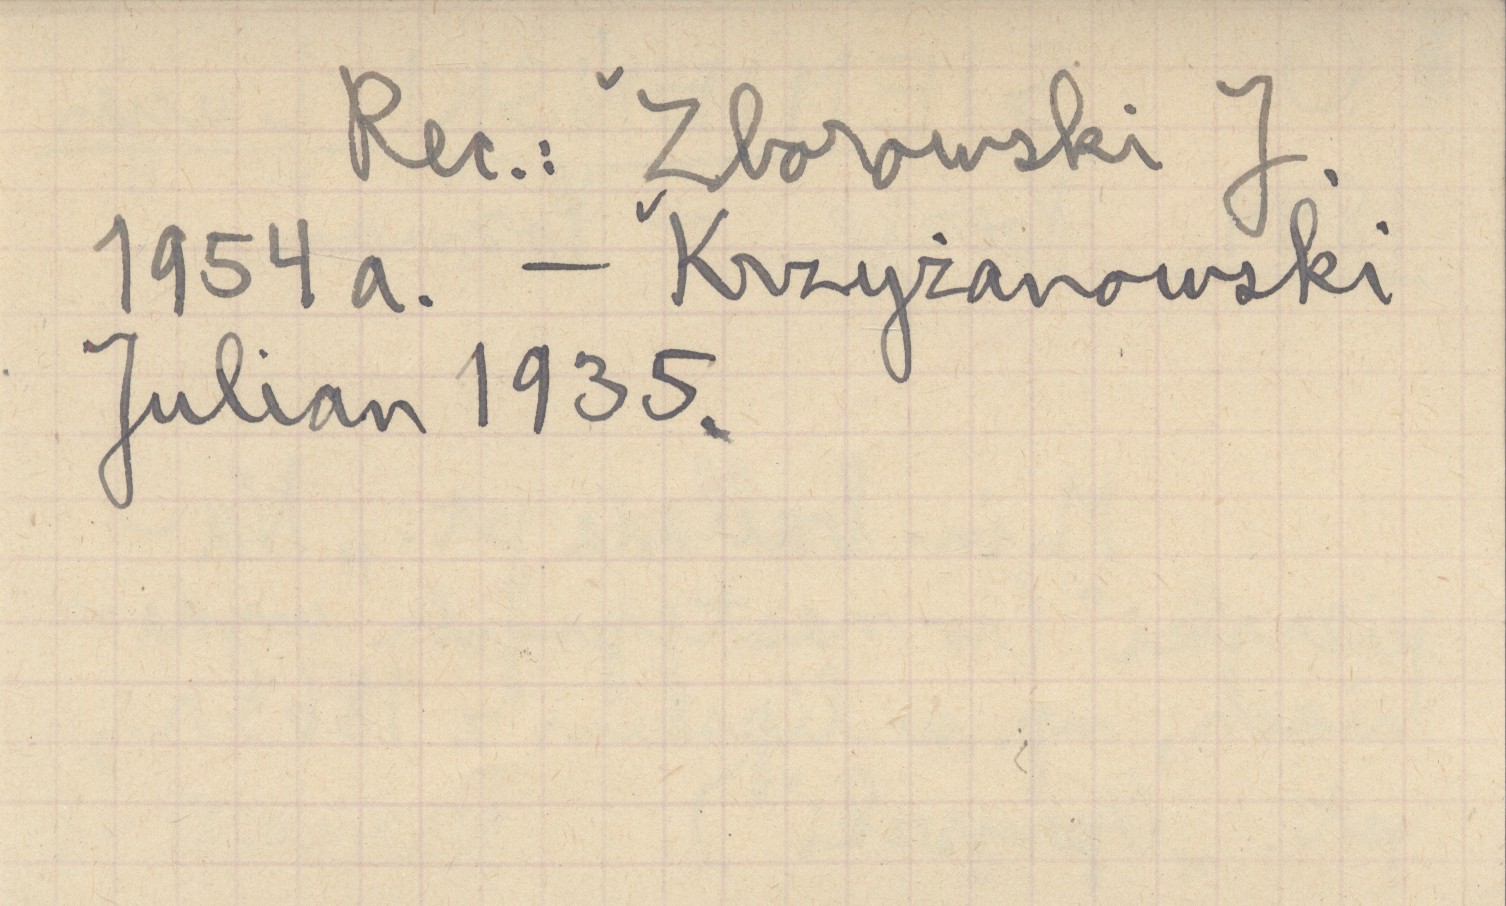 Rec.: ˇZborowski J.
1954 a. — ˇKrzyżanowski
Julian 1935.